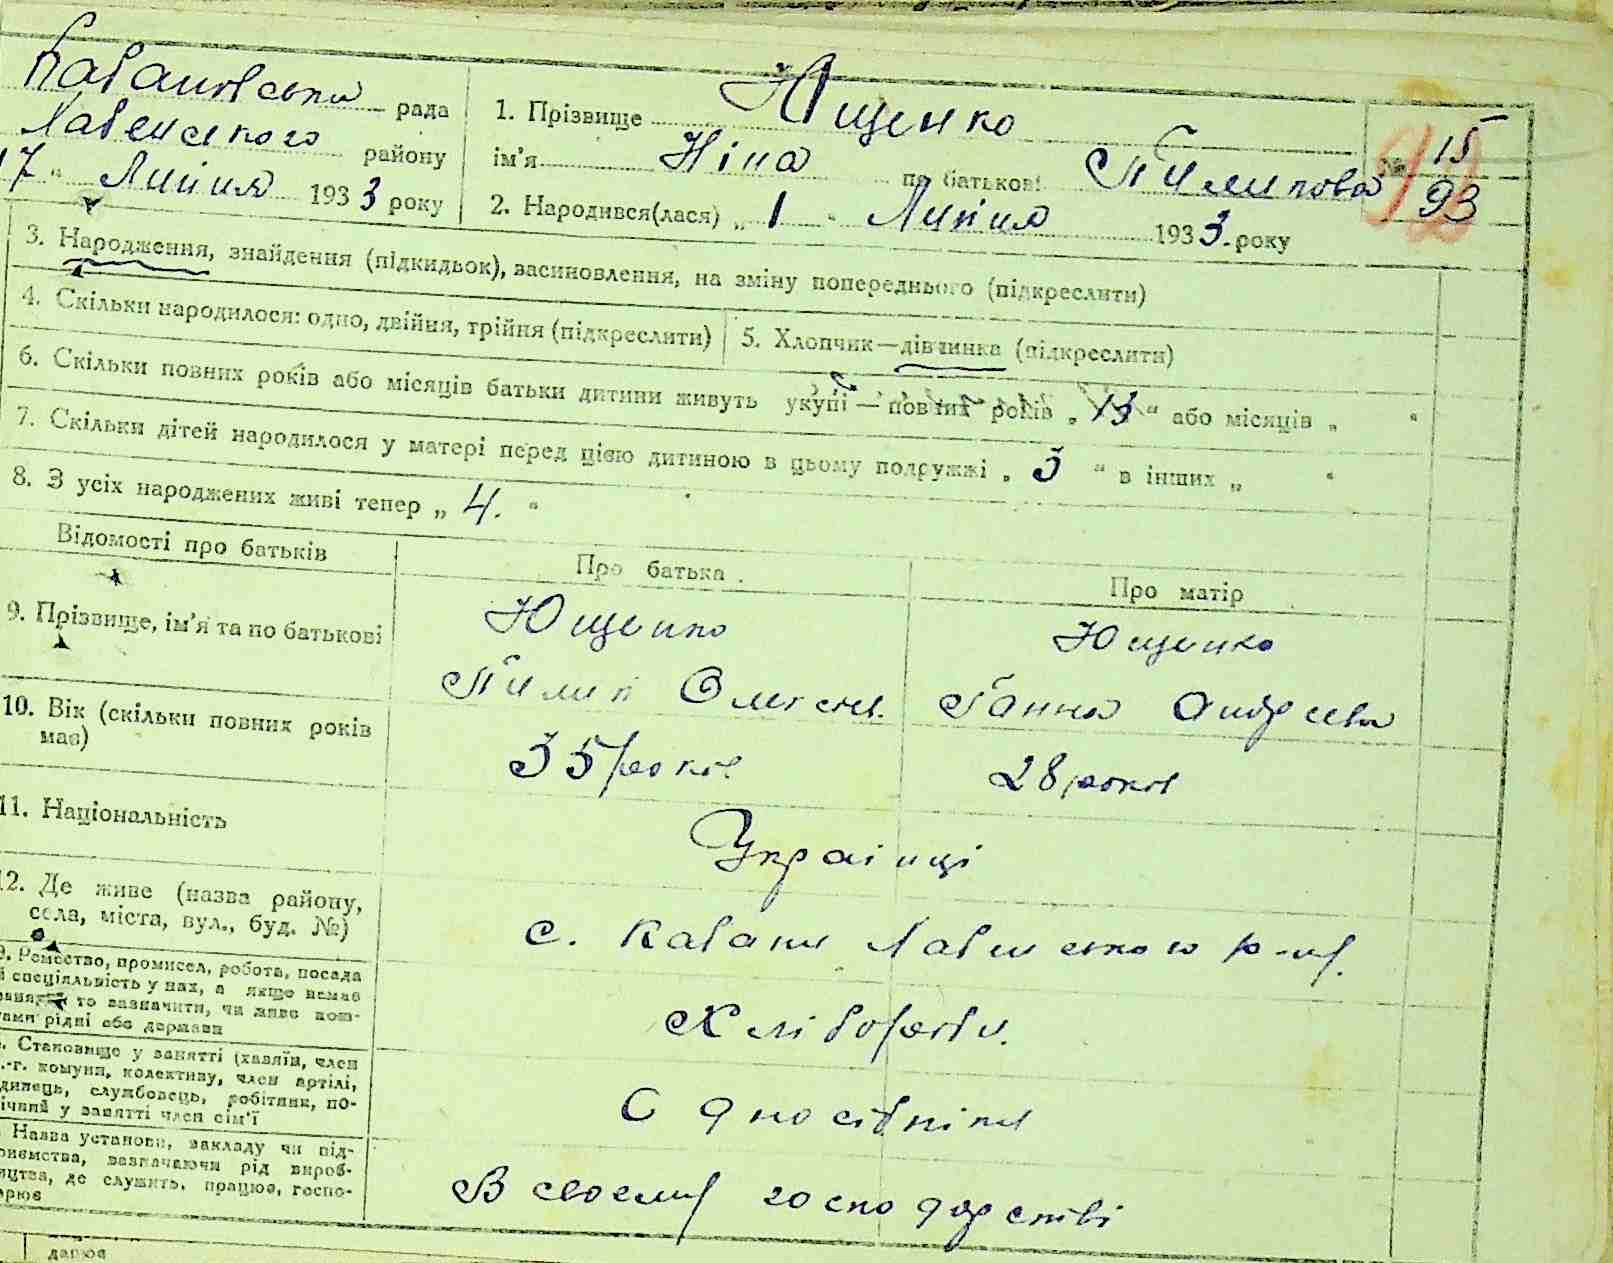 Кабанівська рада
Лабенського району
17 „ Липня 1933 року
1. Прізвище Ющенко
ім'я Ніна по батькові Пилипова
2. Народився(лася) „ 1 " Липня 1933. року
№ 15
93
3. Народження, знайдення (підкидьок), засиновлення, на зміну попереднього (підкреслити)
4. Скільки народилося: одно, двійня, трійня (підкреслити) 5. Хлопчик—дівчинка (підкреслити)
6. Скільки повних років або місяців батьки дитини живуть укупі — повних років „ 13 " або місяців „ "
7. Скільки дітей народилося у матері перед цією дитиною в цьому подружжі „ 3 " в інших „ "
8. З усіх народжених живі тепер „ 4. "
Відомості про батьків Про батька Про матір
9. Прізвище, ім'я та по батькові
Ющенко
Пилип Олексів.
Ющенко
Ганна Андреева
10. Вік (скільки повних років
має)
35 років
28 років
11. Національність
Українці
12. Де живе (назва району,
села, міста, вул., буд. №)
с. Кабани Лабенського р-ну.
Ремество, промисел, робота, посада
й спеціяльність у них, а якщо немає
то зазначити, чи живе кош-
рідні або держави
Хлібороби.
Становище у занятті (хазяїн, член
с.-г. комуни, колективу, член артілі,
службовець, робітник, по-
у занятті член сім'ї
Одноосібники
Назва установи, закладу чи під-
зазначаючи рід вироб-
де служить, працює, госпо-
В своему господарстві